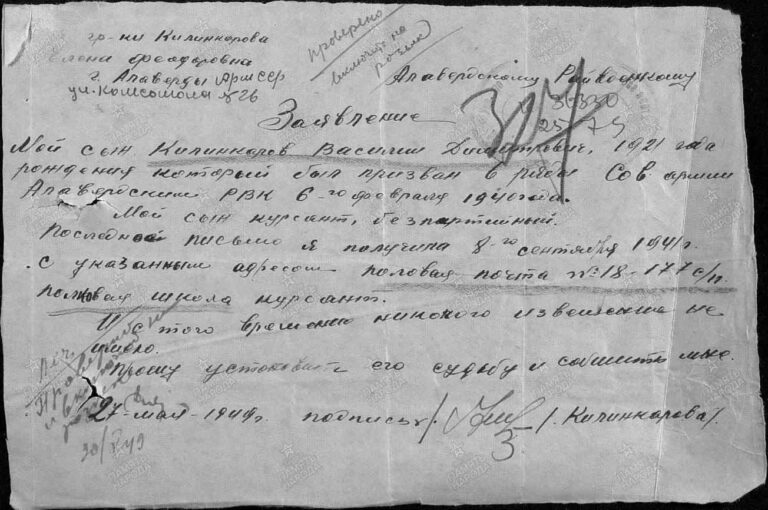 гр-ки Килинкарова
Елена Феодоровна
г. Алаверды АрмССР
ул. Комсомола №26
проверено
включить на
розыск
Алавердскому Райвоенкому
31330
25-74
Заявление
Мой сын Килинкаров Василии Димитрович, 1921 года
рождения который был призван в ряды Сов армии
Алавердским РВК 6-го февраля 1940 года.
Мой сын курсант, безпартийный.
Последное письмо я получила 8-го сентября 1941 г.
с указанным адресом половая почта №18-177 с/п.
полковая школа курсант.
С того времению никокого извещение не
имею.
Прошу устоновить его судьбу и собшить мне.
27-мая-1949г. подпись /. Кил .- /. Килинкарова/.
3
30/V 49
ПАМЯТЬ
НАРОДА